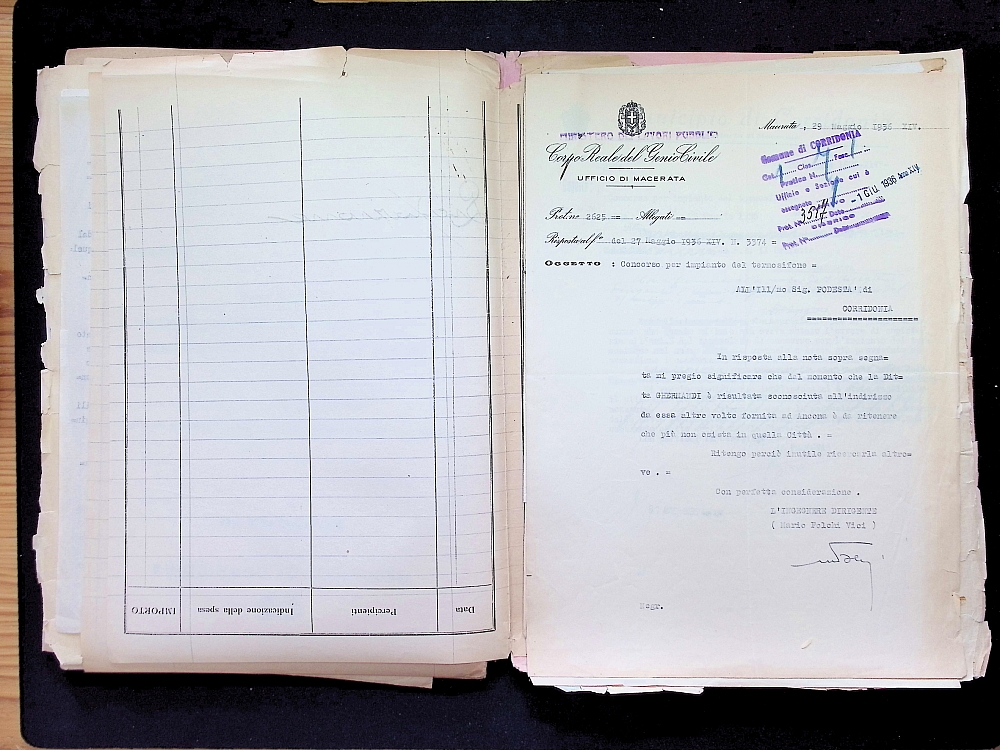 IMPORTO
Indicazione della spesa
Percipienti
Data
Macerata, 29 Maggio 1936 XIV.
Corpo Reale del Genio Civile
UFFICIO DI MACERATA
Comune di CORRIDONIA
Cat. Clas. Fasc.
Pratica N.
Ufficio e Sezione cui è
assegnato
Prot. N° 3517 Data -1 GIU. 1936 Anno XIV
Prot. N° Data
Prot. n° 2625 == Allegati ==
Risposta al f° del 27 Maggio 1936 XIV. N. 3374 =
OGGETTO : Concorso per impianto del termosifone =
ALL'Ill/mo Sig. PODESTA' di
CORRIDONIA
In risposta alla nota sopra segna=
ta mi pregio significare che dal momento che la Dit=
ta GHERMANDI è risultata sconosciuta all'indirizzo
da essa altre volte fornita ad Ancona è da ritenere
che più non esista in quella Città . =
Ritengo perciò inutile ricercarla altro=
ve . =
Con perfetta considerazione .
L'INGEGNERE DIRIGENTE
( Mario Folchi Vici )
Mcgr.